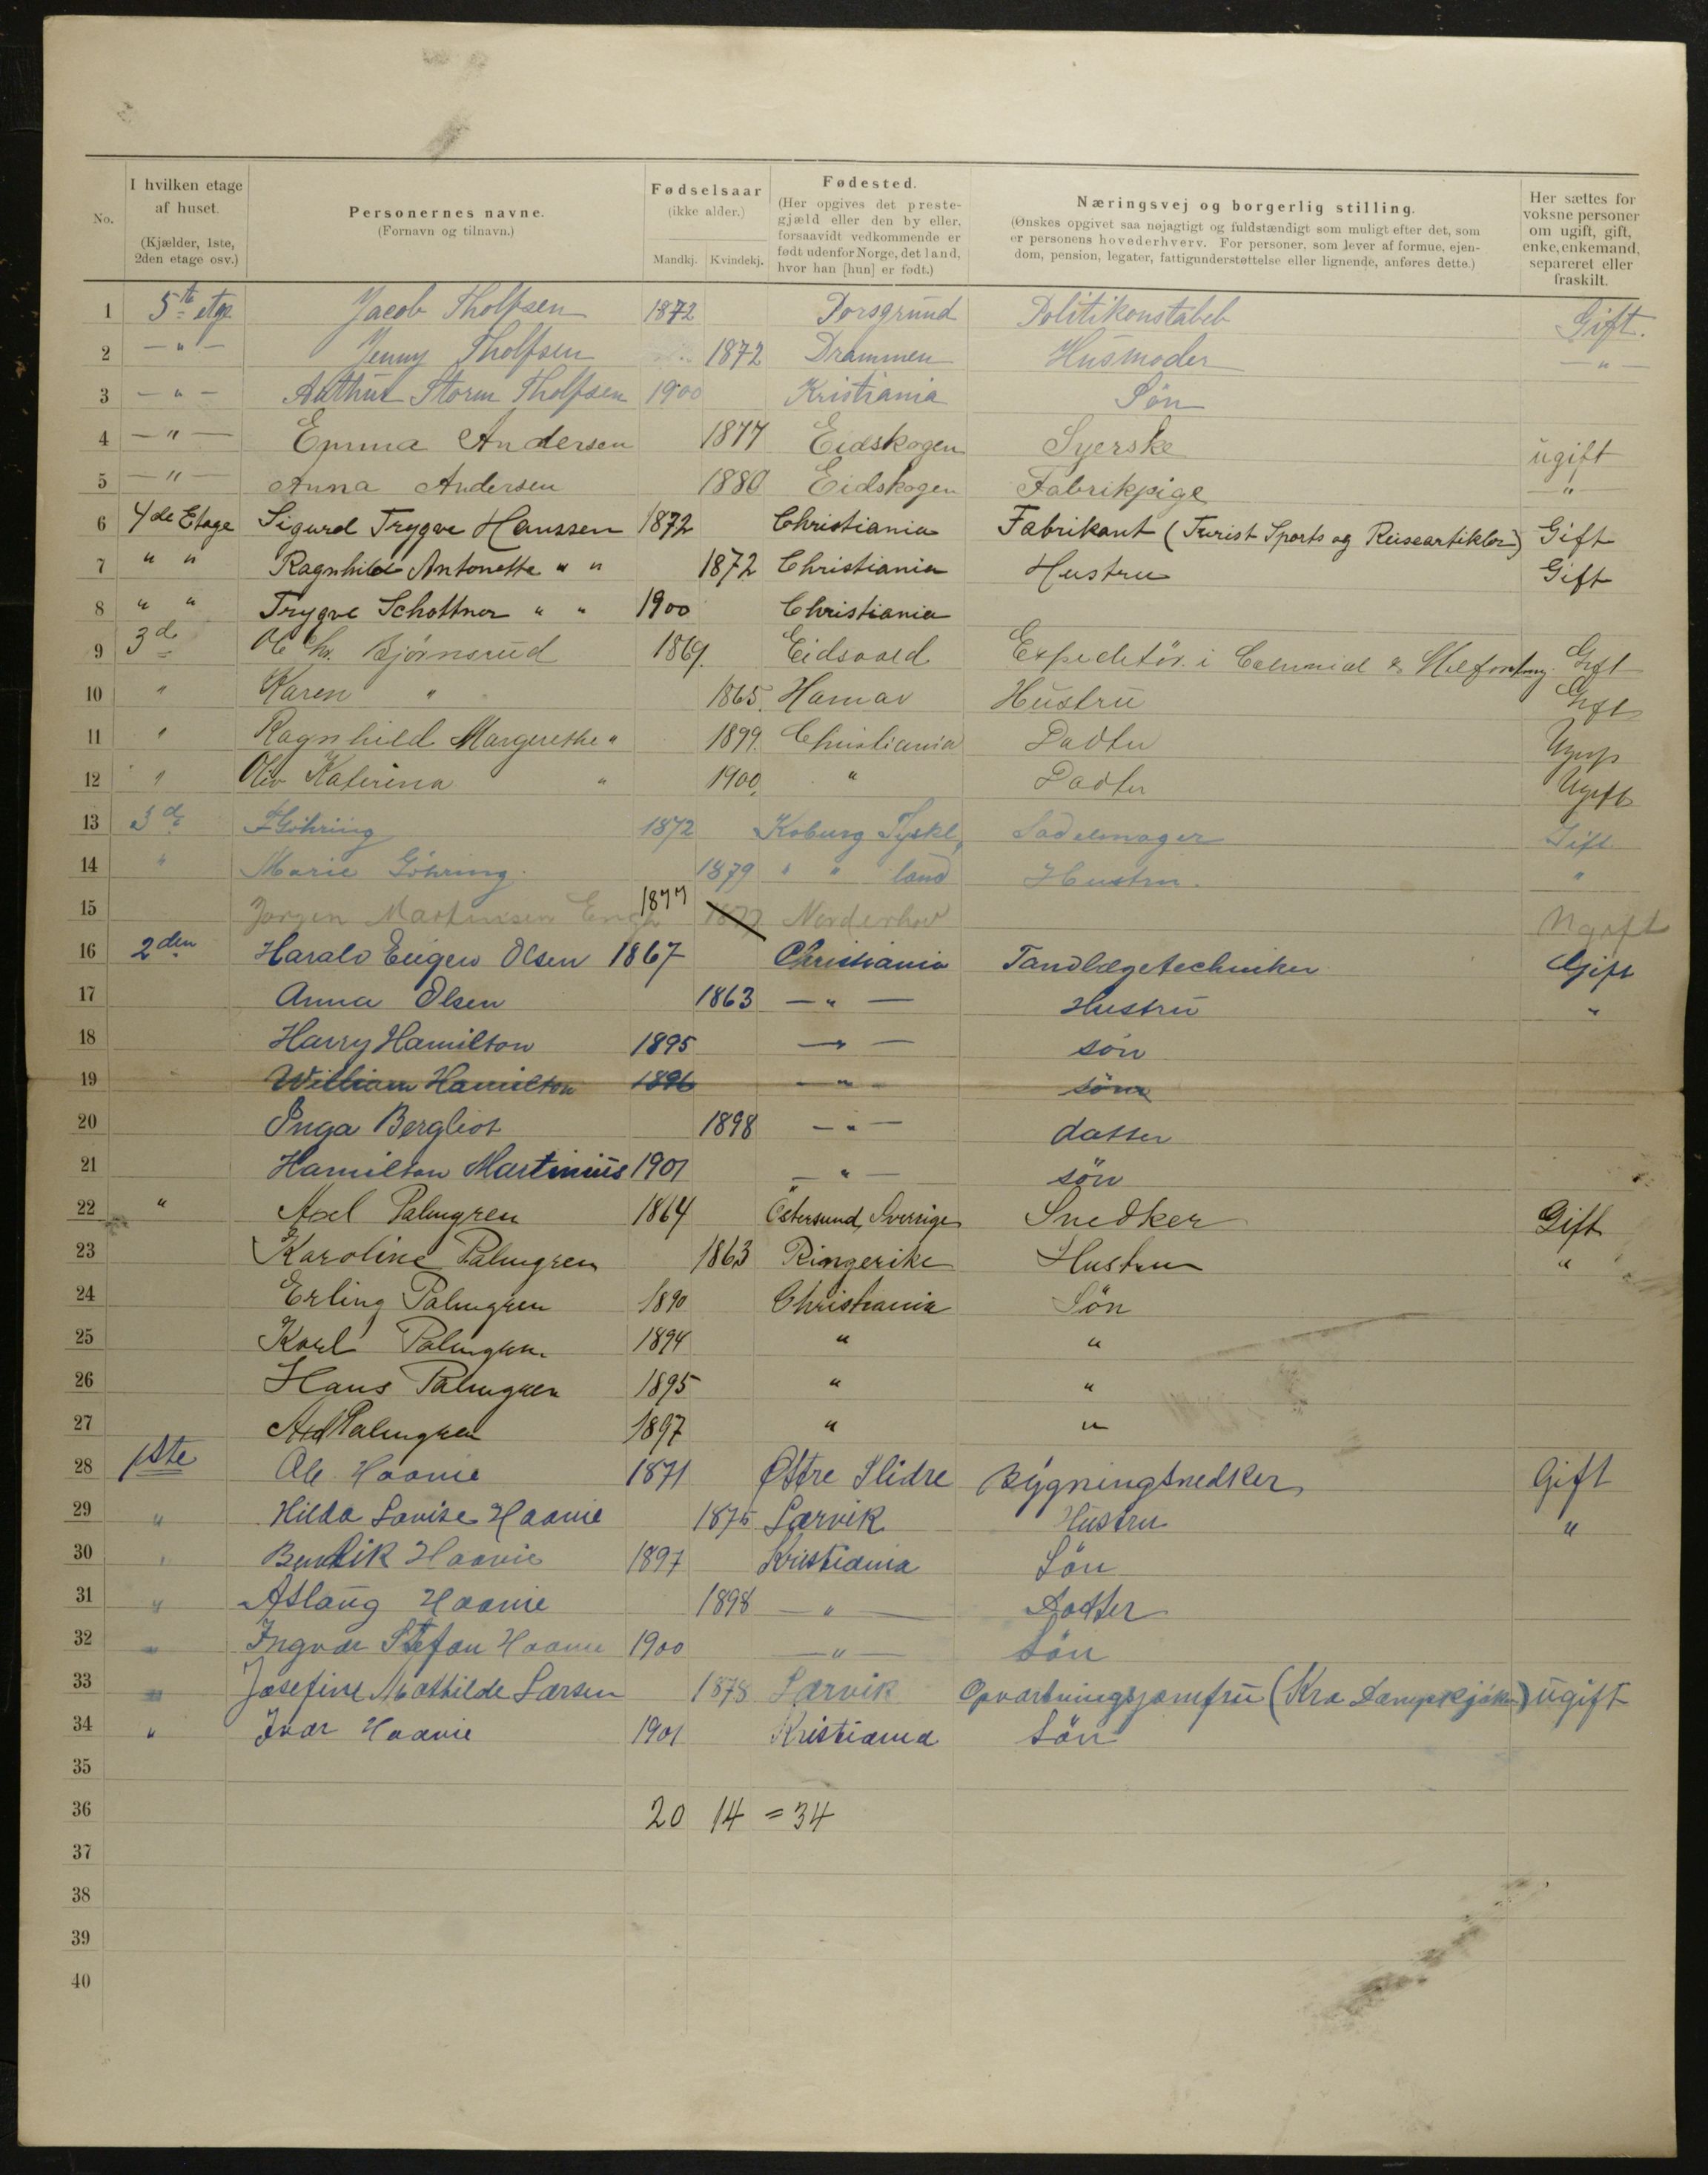 No. | I hvilken etage af huset. (Kjælder, 1ste, 2den etage osv.) | Personernes navne. (Fornavn og tilnavn.) | Fødselsaar (ikke alder.) Mandkj. Kvindekj. | Fødested. (Her opgives det prestegjæld eller den by eller, forsaavidt vedkommende er født udenfor Norge, det land, hvor han [hun] er født.) | Næringsvej og borgerlig stilling. (Ønskes opgivet saa nøjagtigt og fuldstændigt som muligt efter det, som er personens hovederhverv. For personer, som lever af formue, ejendom, pension, legater, fattigunderstøttelse eller lignende, anføres dette.) | Her sættes for voksne personer om ugift, gift, enke, enkemand, separeret eller fraskilt.
1 5te etg. Jacob Tholfsen 1872 Porsgrund Politikonstabel Gift.
2 — " — Jenny Tholfsen 1872 Drammen Husmoder — " —
3 — " — Arthur Storm Tholfsen 1900 Kristiania Søn
4 — " — Emma Andersen 1877 Eidskogen Syerske ugift
5 — " — Anna Andersen 1880 Eidskogen Fabrikpige — " —
6 4de Etage Sigurd Trygve Hanssen 1872 Christiania Fabrikant (Turist Sports og Reiseartikler) Gift
7 " " Ragnhild Antonette " " 1872 Christiania Hustru Gift
8 " " Trygve Schottner " " 1900 Christiania
9 3d Ole Chr. Bjørnsrud 1869. Eidsvold Expeditör i Colonial & Gift
10 " Karen " 1865. Hamar Hustru Gift
11 " Ragnhild Margerethe " 1899. Christiania Dadter Ugift
12 " Katerina " 1900. " Dadter Ugift
13 3de Göhring 1872 Koburg Tyskl, Sadelmager Gift
14 " Marie Göhring. 1879 " " land Hustru. "
15 Jørgen Martinsen Engh 1877 1877 Norderhov Ugift
16 2den Harald Eugen Olsen 1867 Christiania Tandlægetechniker Gift
17 Anna Olsen 1863 — " — Hustru "
18 Harry Hamilton 1895 — " — sön
19 William Hamilton 1896 — " — sönn
20 Inga Bergliot 1898 — " — datter
21 Hamilton Martinius 1901 — " — sön
22 " Axel Palmgren 1864 Östersund, Sverrige Snedker Gift
23 Karoline Palmgren 1863 Ringerike Hustru "
24 Erling Palmgren 1890 Christiania Sön
25 Karl Palmgren 1894 " "
26 Hans Palmgren 1895 " "
27 Axel Palmgren 1897 " "
28 1ste Ole Haavie 1871 Østre Slidre Bygningsnedker Gift
29 " Hilda Lovise Haavie 1875 Larvik Hustru "
30 " Bendik Haavie 1897 Kristiania Sön
31 " Aslaug Haavie 1898 — " — Datter
32 " Ingvar Stefan Haavie 1900 — " — Sön
33 " Josefine Mathilde Larsen 1878 Larvik Opvartningsjomfru (Kra Dampkjøken) ugift
34 " Ivar Haavie 1901 Kristiania Sön
35
36 20 14 = 34
37
38
39
40